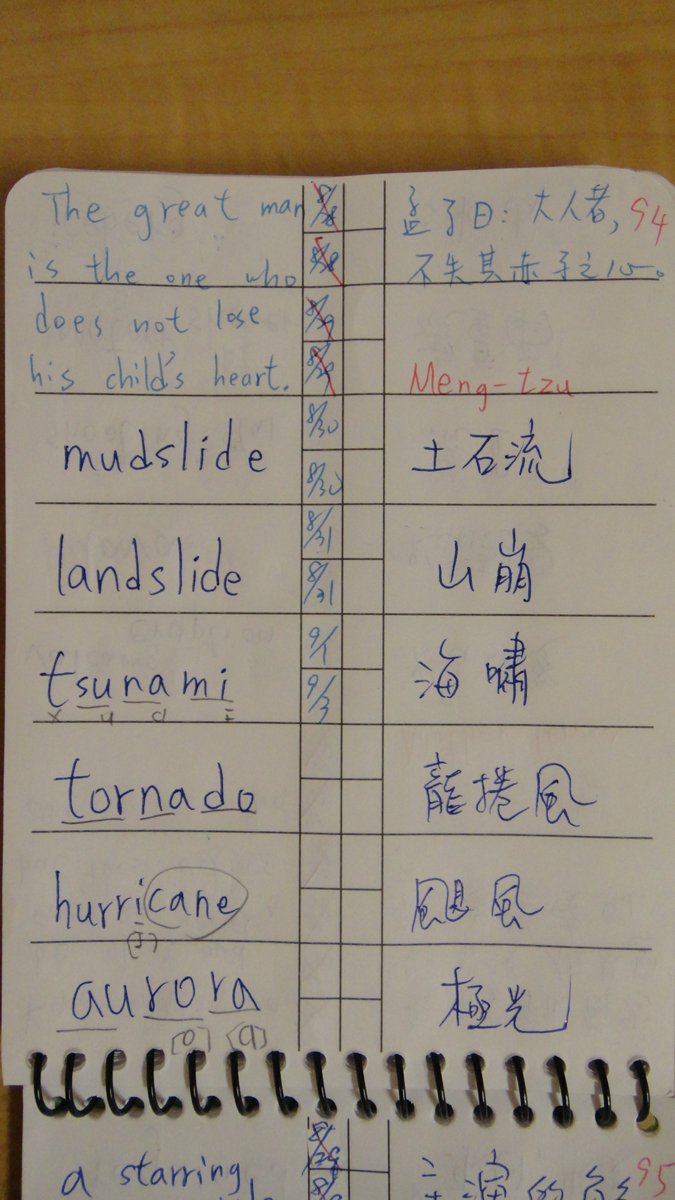 The great man 8/28 孟子曰：大人者， 94
is the one who 8/28 不失其赤子之心。
does not lose 8/29
his child's heart. 8/29 Meng-tzu
8/30
mudslide 土石流
8/30
8/31
landslide 山崩
8/31
9/1
tsunami 海嘯
9/3
x u a i
tornado 龍捲風
hurricane 颶風
[I]
aurora 極光
[o] [a]
a starring 95